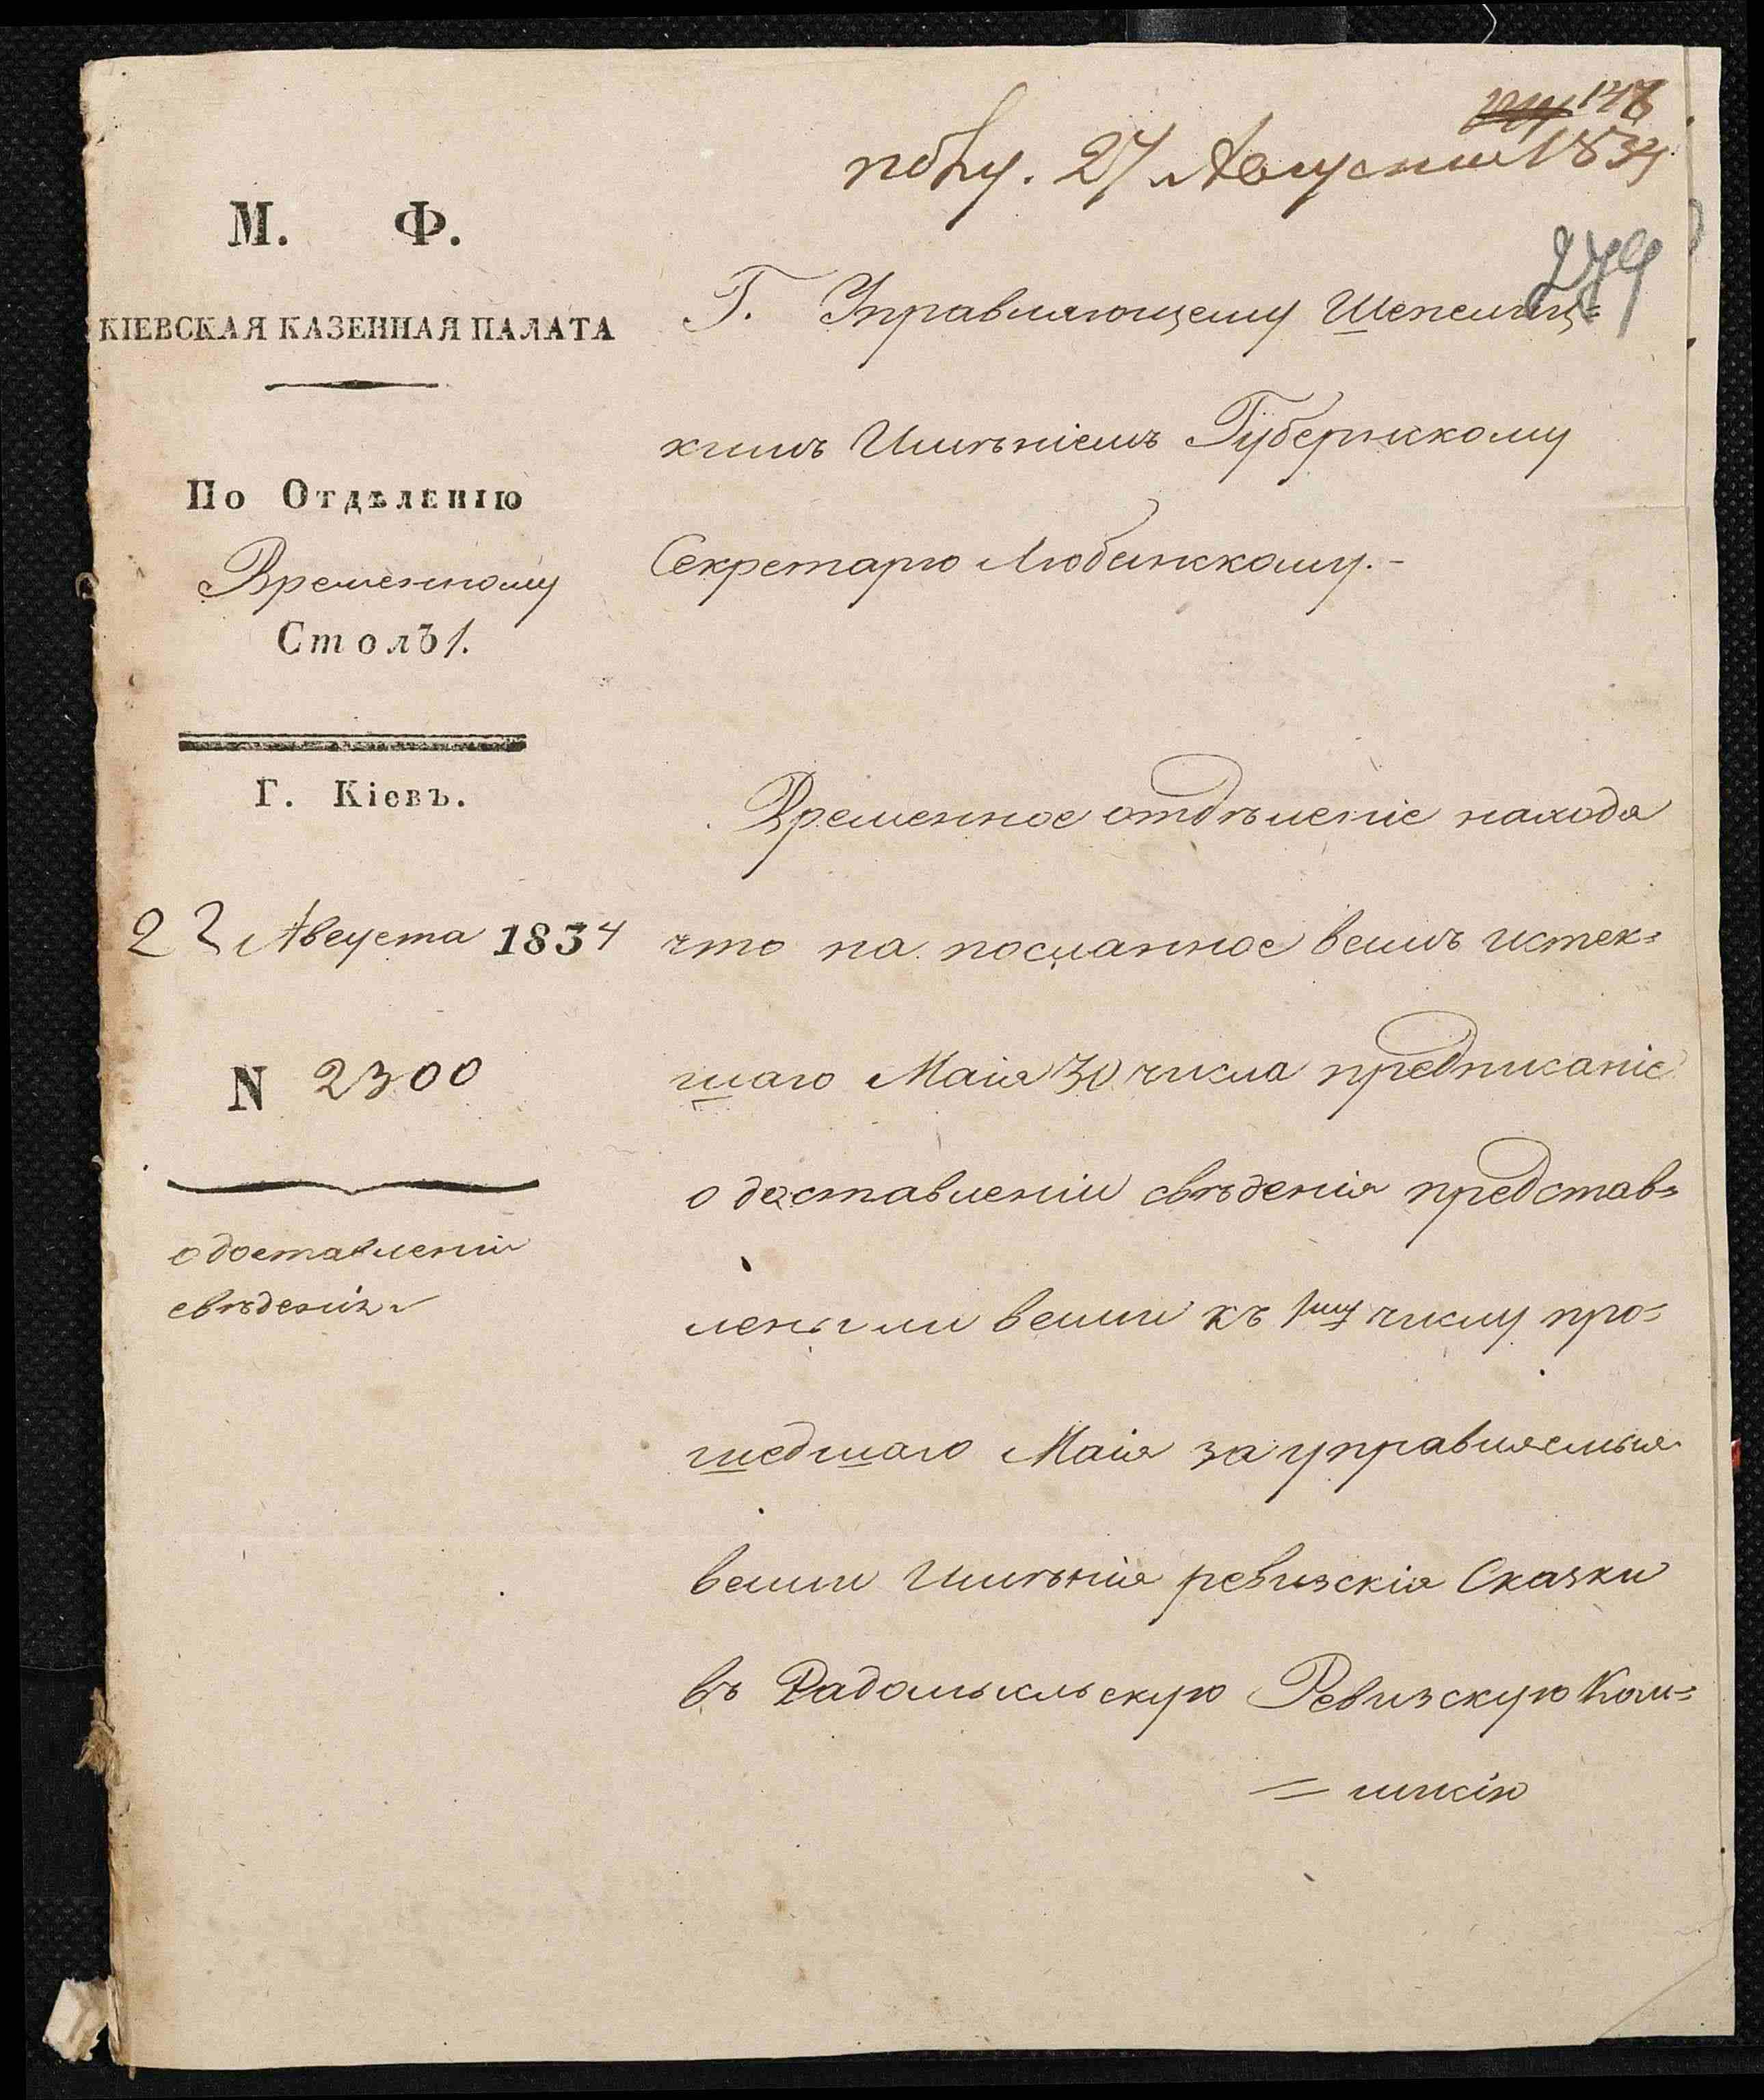 147
27 Августа 1834
279
М. Ф.
КІЕВСКАЯ КАЗЕННАЯ ПАЛАТА
По Отдѣленію
Временному
Столъ 1.
Г. Кіевъ.
Августа 1834
N 2300
о доставленіи
свѣденія
Г. Управляющему Шепелиц=
кимъ Имѣніемъ Губернскому
Секретарю Любинскому.-
Временное отдѣленіе находя
что на посланное вами истек=
шаго Маія 30 числа предписаніе
о доставленіи свѣденія представ=
лены ли вами къ 1му числу про=
шедшаго Маія за управляемыя
вами Имѣнія ревизскія Сказки
въ Радомысльскую Ревизскую Ком=
=мисію